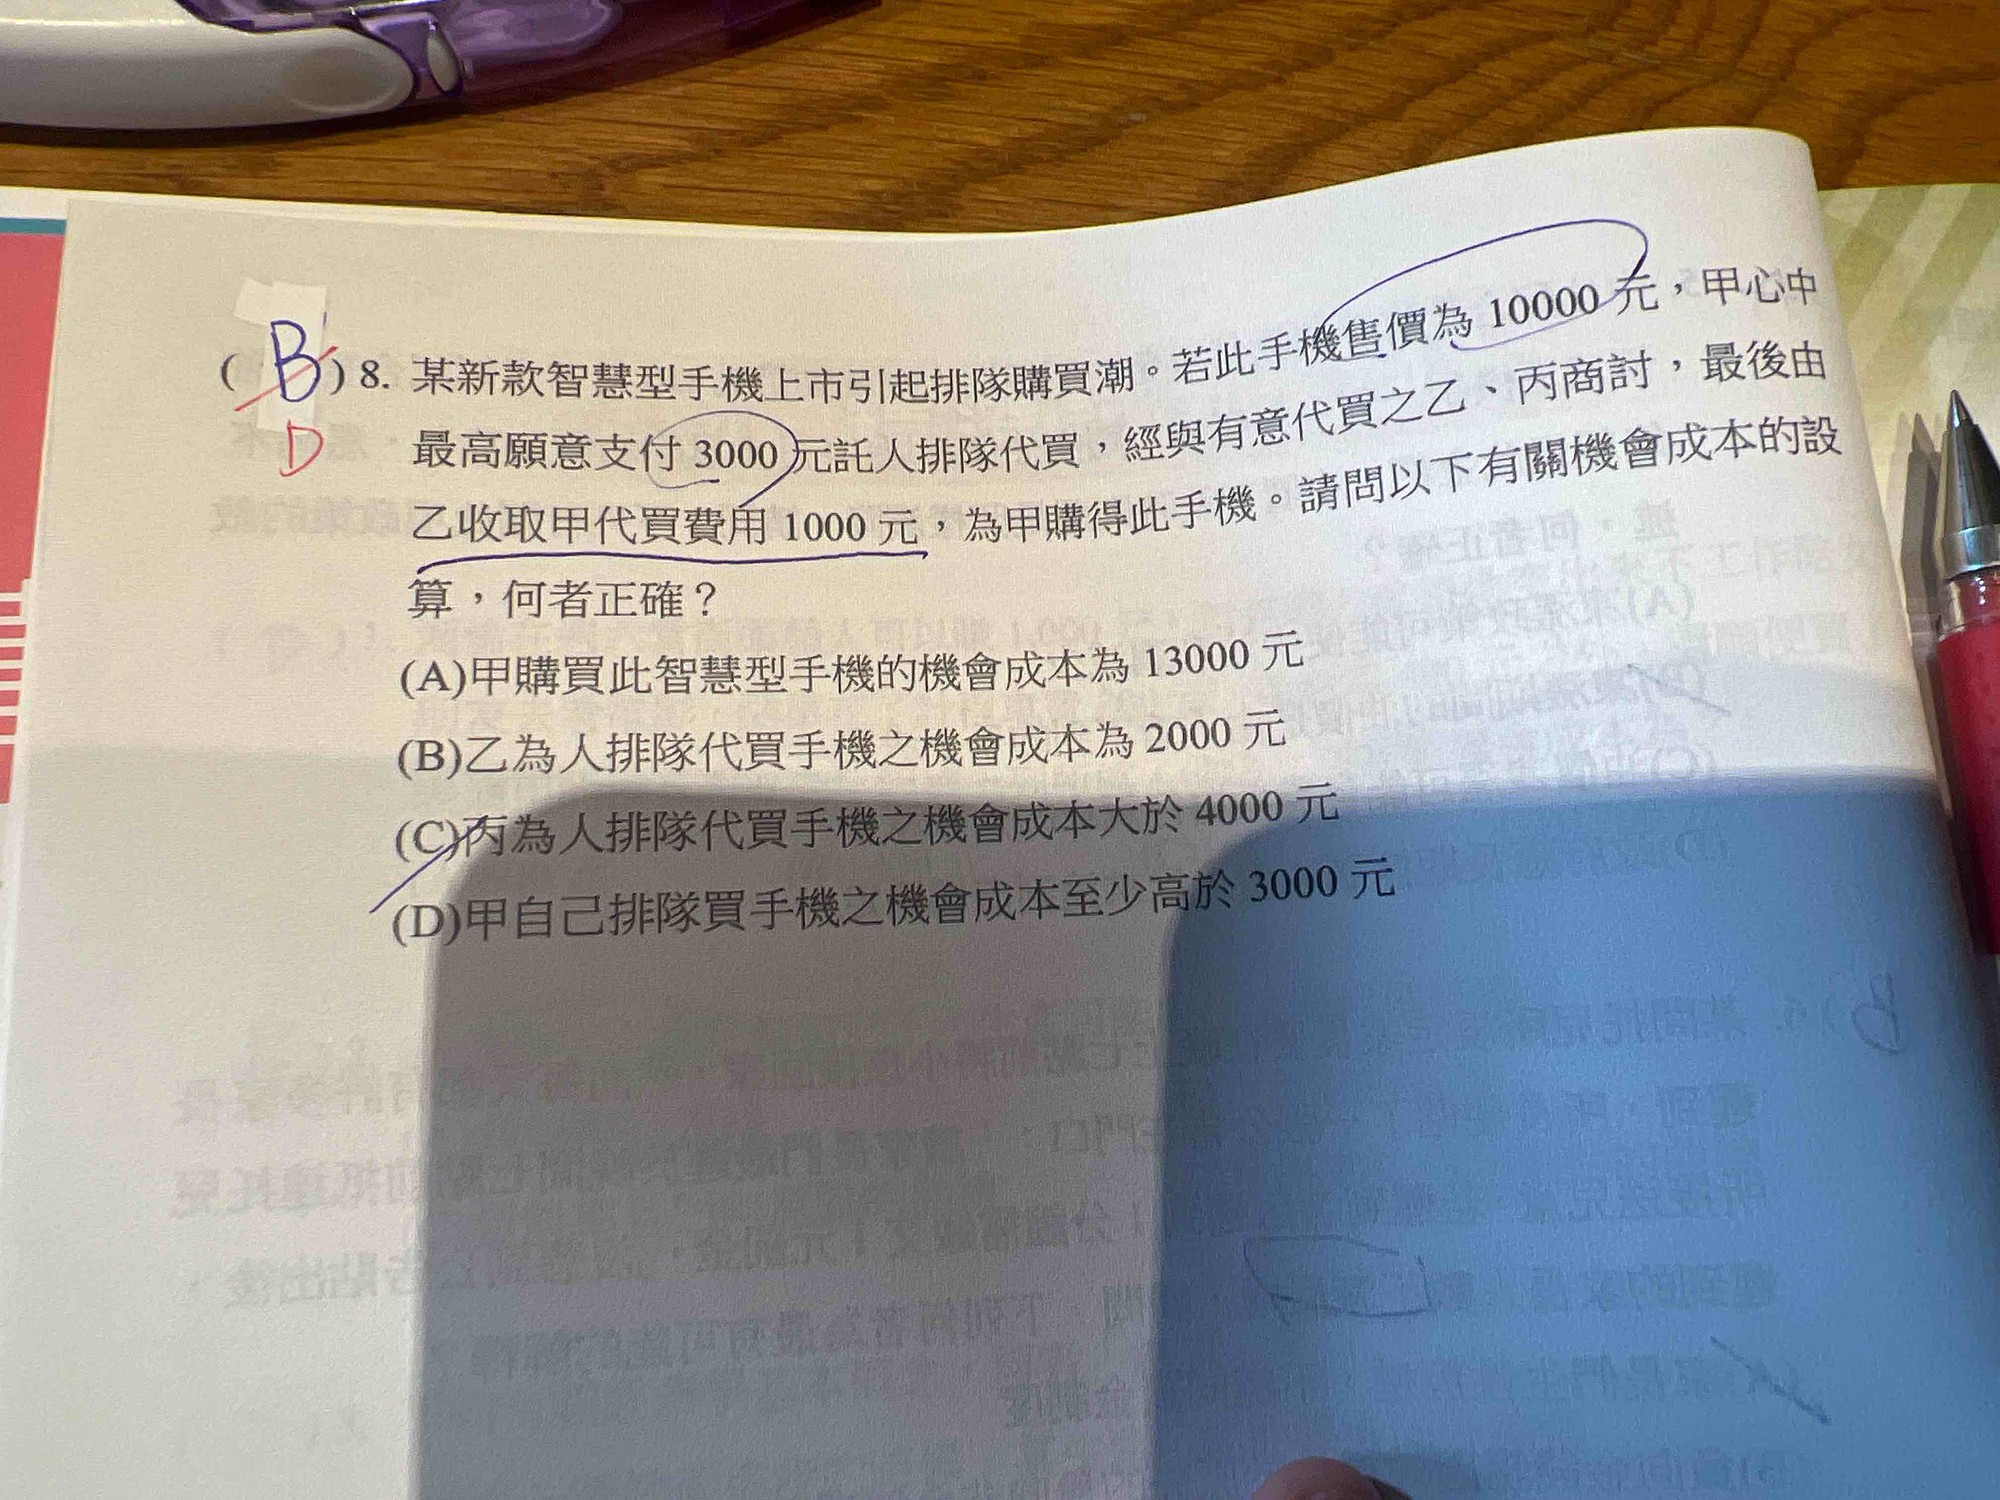 (B)8. 某新款智慧型手機上市引起排隊購買潮。若此手機售價為 10000 元，甲心中
D
最高願意支付 3000 元託人排隊代買，經與有意代買之乙、丙商討，最後由
乙收取甲代買費用 1000 元，為甲購得此手機。請問以下有關機會成本的設
算，何者正確？
(A)甲購買此智慧型手機的機會成本為 13000 元
(B)乙為人排隊代買手機之機會成本為 2000 元
(C)丙為人排隊代買手機之機會成本大於 4000 元
(D)甲自己排隊買手機之機會成本至少高於 3000 元